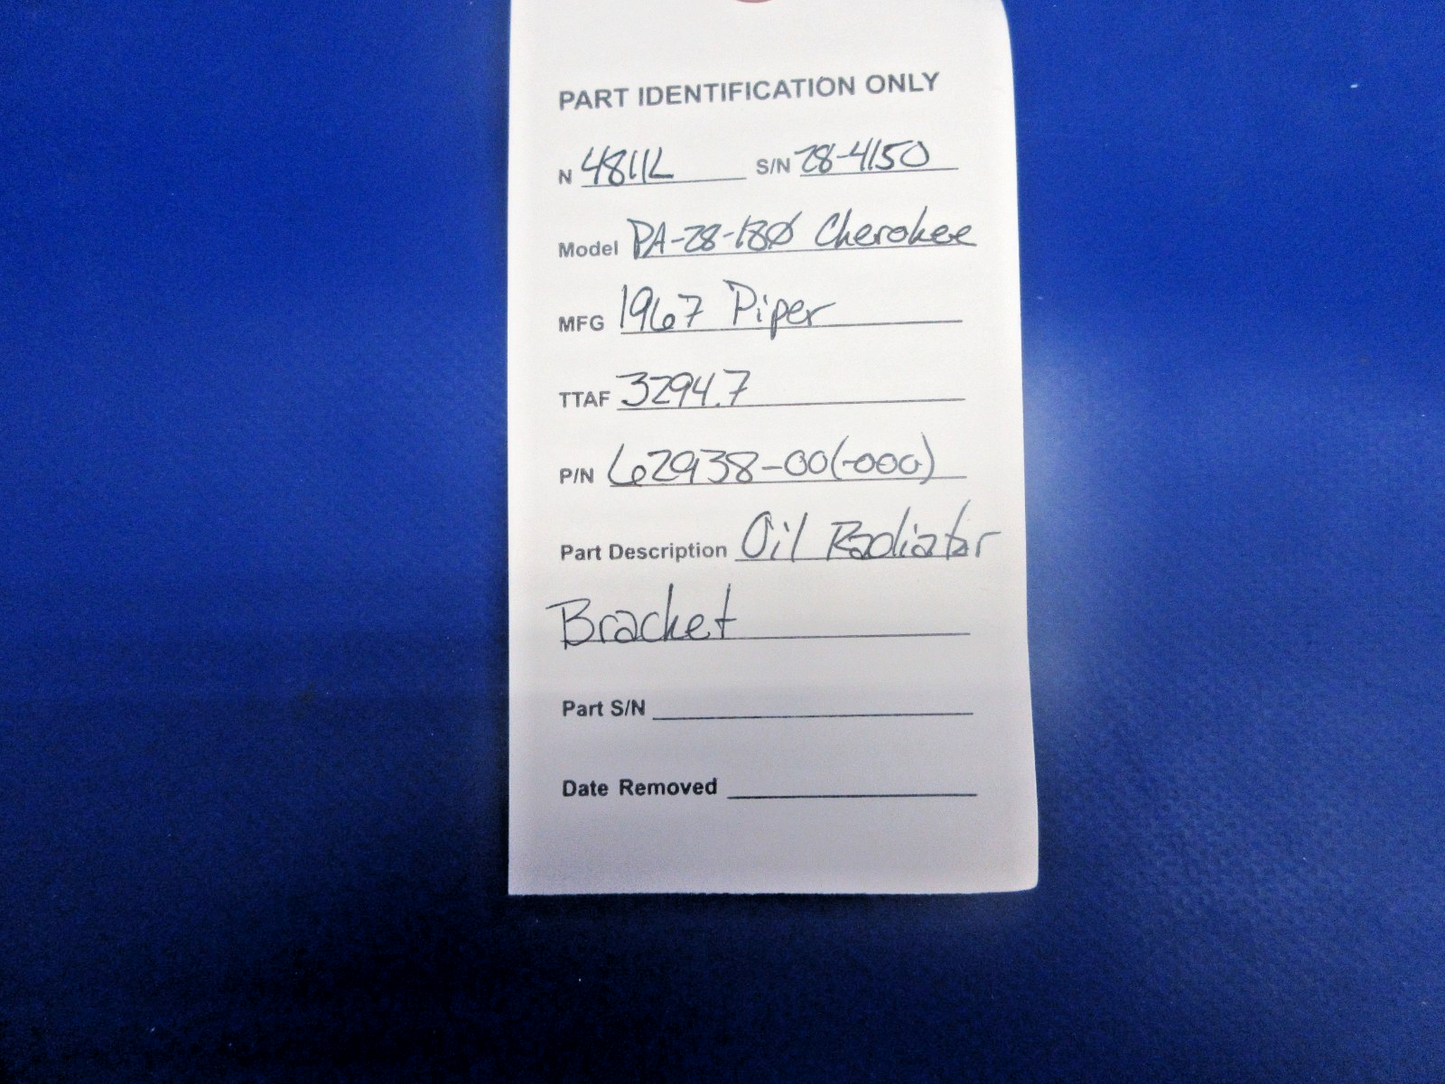 PART IDENTIFICATION ONLY
N 4811L S/N 28-4150
Model PA-28-180 Cherokee
MFG 1967 Piper
TTAF 3294.7
P/N 62938-00(-000)
Part Description Oil Radiator
Bracket
Part S/N
Date Removed